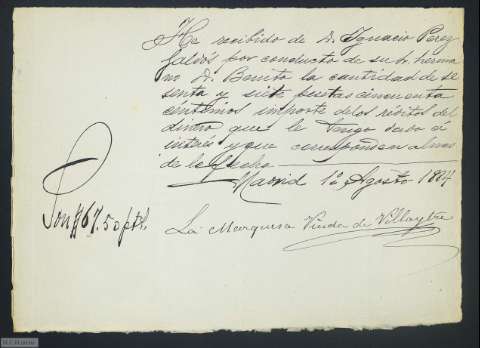 He recibido de D. Ygnacio Perez
Galdós por conducto de su h. herma
no D. Benito la cantidad de se
senta y siete pesetas cincuenta
centimos importe de los réditos del
dinero que le tengo dado á
interés y que corresponden al mes
de la fecha
Madrid 1º Agosto 1894
Son 67.50 pts.
La Marquesa Viuda de Villaytre